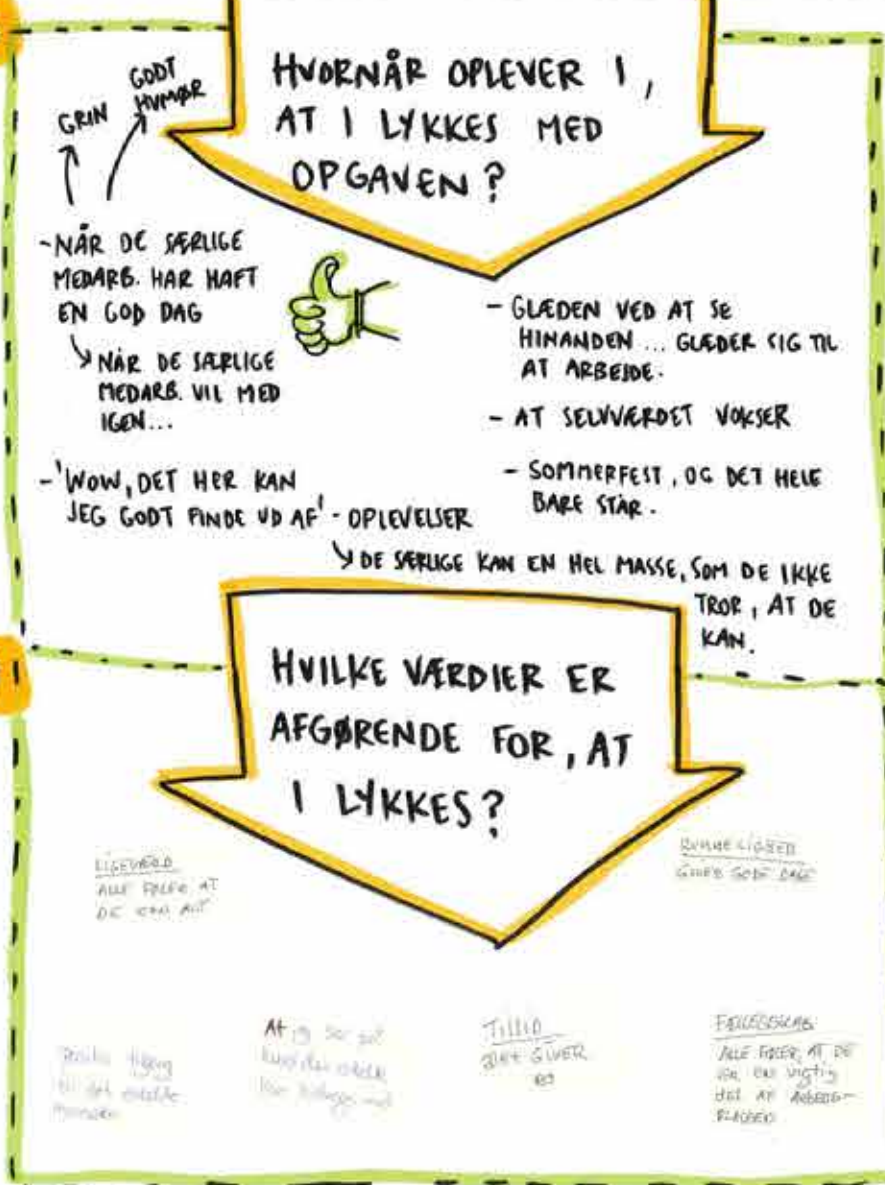 HVORNÅR OPLEVER I,
AT I LYKKES MED
OPGAVEN?
GRIN
GODT
HUMØR
-NÅR DE SÆRLIGE
MEDARB. HAR HAFT
EN GOD DAG
NÅR DE SÆRLIGE
MEDARB. VIL MED
IGEN...
-'WOW, DET HER KAN
JEG GODT FINDE UD AF'-OPLEVELSER
DE SÆRLIGE KAN EN HEL MASSE, SOM DE IKKE
TROR, AT DE
KAN.
- GLÆDEN VED AT SE
HINANDEN... GLÆDER SIG TIL
AT ARBEJDE.
- AT SELVVÆRDET VOKSER
- SOMMERFEST, OG DET HELE
BARE STÅR.
HVILKE VÆRDIER ER
AFGØRENDE FOR, AT
I LYKKES?
LIGEVÆRD
ALLE FØLER AT
DE KAN
RUMMELIGHED
GIVER GODE DAGE
til det enkelte
At jeg ser
den enkelte
TILLID
GIVER
FÆLLESSKAB
ALLE FØLER, AT DE
ER EN vigtig
del AF ARBEJDS-
PLADSEN